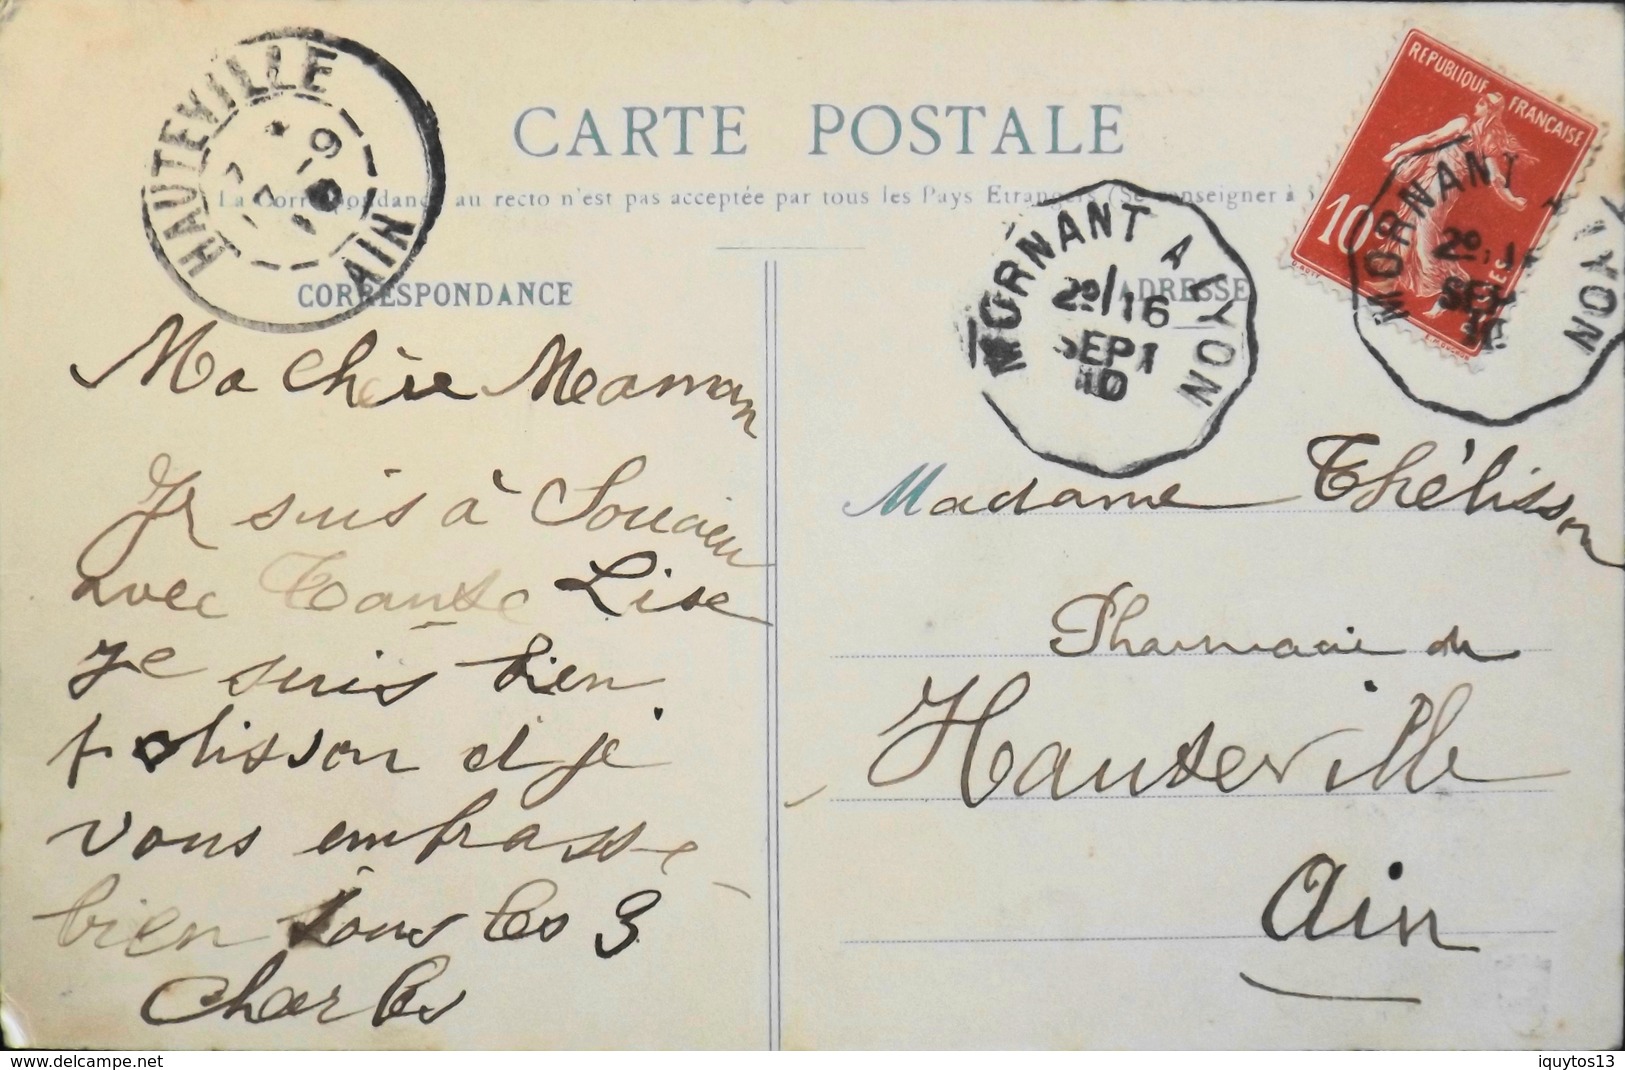 HAUTEVILLE
AIN
CARTE POSTALE
La Correspondance au recto n'est pas acceptée par tous les Pays Etrangers (Se renseigner à
REPUBLIQUE FRANÇAISE
10c
MORNANT A LYON
2º/16
SEPT
10
MORNANT A LYON
2º
SEPT
10
CORRESPONDANCE
ADRESSE
Ma Chère Maman
Je suis à Soucieu
avec Tante Lise
Je suis bien
polisson et je
vous embrasse
bien tous les 3
Charles
Madame Thélisson
Pharmacie du
Hauteville
Ain
delcampe.net
iquytos13